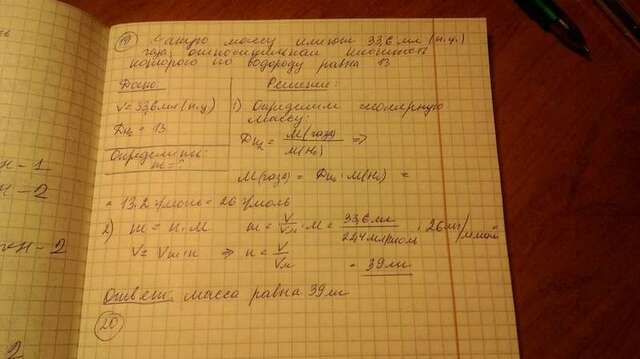 19) Какую массу имеют 33,6 мл (н.у.)
газа, относительная плотность
которого по водороду равна 13
Дано:
V = 33,6 мл (н.у)
DH₂ = 13
Определить:
m = ?
Решение:
1) Определим молярную
массу:
DH₂ = M(газа) / M(H₂) ⇒
M(газа) = DH₂ · M(H₂) =
= 13·2 г/моль = 26 г/моль
2) m = n·M m = V/Vm · M = 33,6 мл / 22,4 мл/ммоль · 26 мг/ммоль
V = Vm·n ⇒ n = V/Vm = 39 мг
Ответ: масса равна 39 мг
20
н - 1
н - 2
н - 2
2